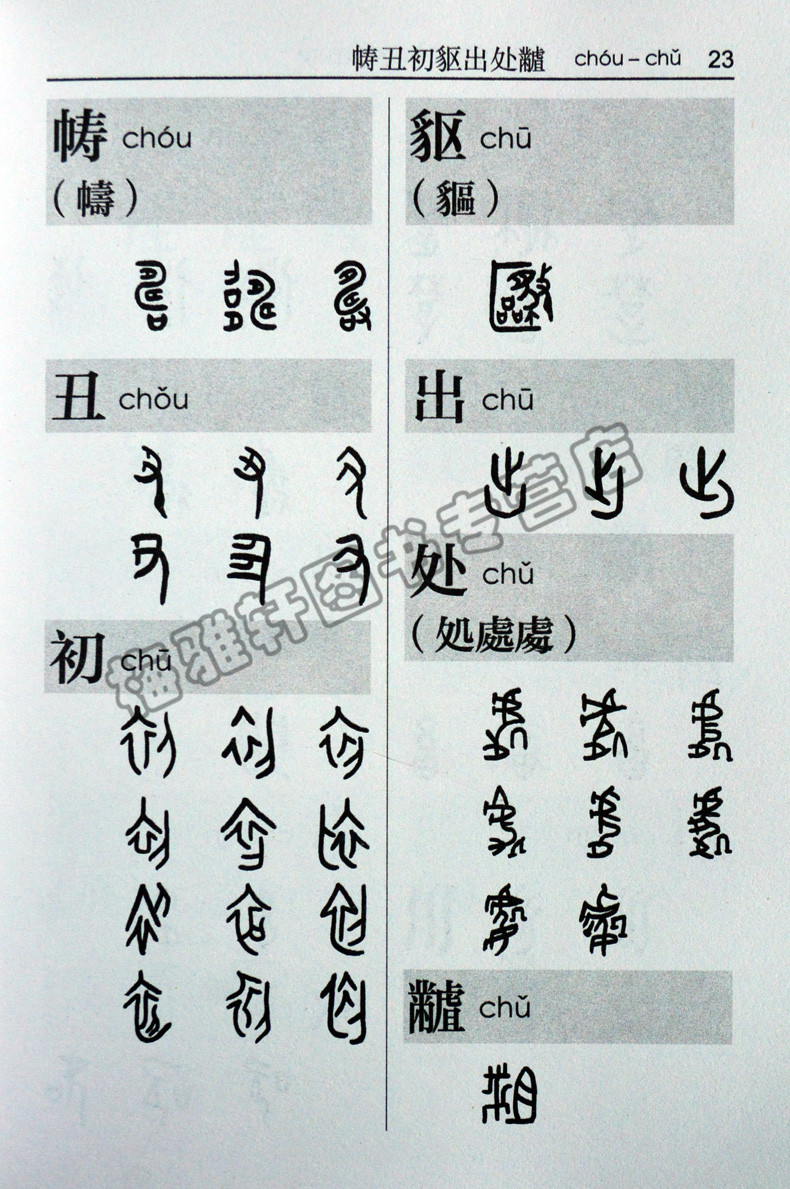 帱丑初貙出处齇 chóu – chǔ 23
帱 chóu
（幬）
丑 chǒu
初 chū
䝙 chū
（貙）
出 chū
处 chǔ
（処處䖏）
chǔ
梅雅轩图书专营店